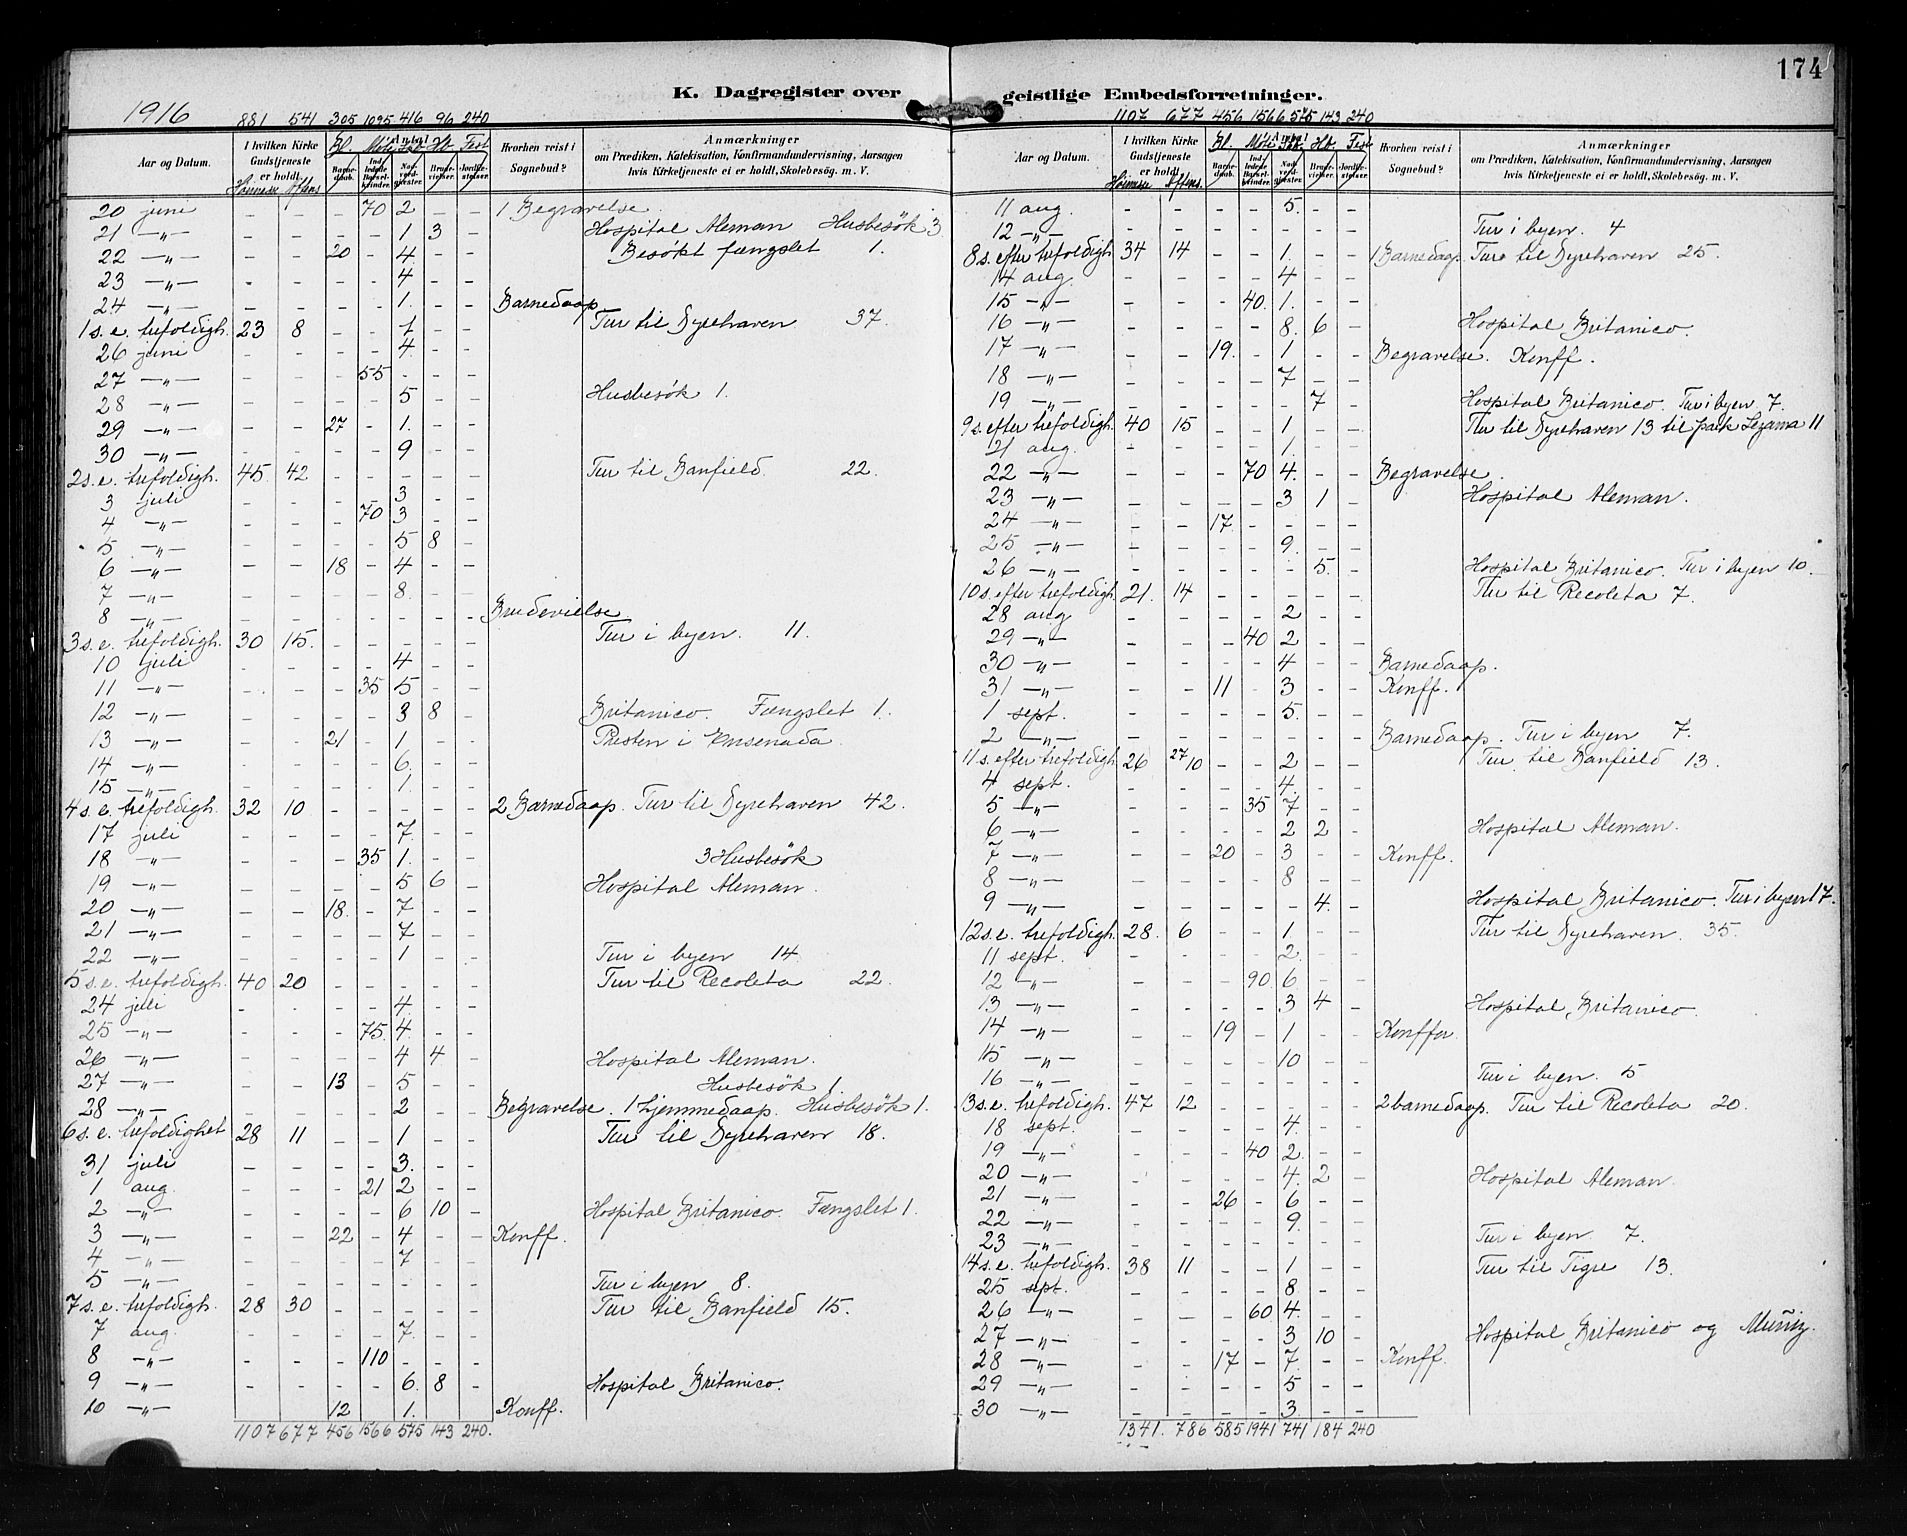 174
K. Dagregister over geistlige Embedsforretninger.
1916 881 541 305 1095 416 96 240
Aar og Datum. I hvilken Kirke Gudstjeneste er holdt. Antal Hvorhen reist i Sognebud? Anmærkninger om Prædiken, Katekisation, Konfirmandundervisning, Aarsagen hvis Kirketjeneste ei er holdt, Skolebesøg. m. V.
Höimesse Aftens Bl. Möte Hb. Fest
Barnedaab. Indledede Barselkvinder. Nadverdgjester. Brudevielser. Jordfæstelser.
20 juni – – – 70 2 – – 1 Begravelse
21 –„– – – – – 1 3 – Hospital Aleman Husbesök 3
22 –„– – – 20 – 4. – – Besökt fængslet 1.
23 –„– – – – – 4 – –
24 –„– – – – – 1. – – Barnedaap
1 s. e. trefoldigh. 23 8 – – 1 – – Tur til Dyrehaven 37.
26 juni – – – – 4 – –
27 –„– – – – 55 – – –
28 –„– – – – – 5 – – Husbesök 1.
29 –„– – – 27 – 1. – –
30 –„– – – – – 9 – –
2 s. e. trefoldigh. 45 42 – – – – – Tur til Banfield. 22.
3 juli – – – – 3 – –
4 –„– – – – 70 3 – –
5 –„– – – – – 5 8 –
6 –„– – – 18 – 4 – –
7 –„– – – – – 8. – –
8 –„– – – – – – – – Brudevielse
3 s. e. trefoldigh. 30 15. – – – – – Tur i byen. 11.
10 juli – – – – 4 – –
11 –„– – – – 35 5 – –
12 –„– – – – – 3 8 – Britanico. Fængslet 1.
13 –„– – – 21 – 1 – – Presten i Ensenada
14 –„– – – – – 6. – –
15 –„– – – – – 1. – –
4 s. e. trefoldigh 32 10 – – – – – 2 Barnedaap. Tur til Dyrehaven 42.
17 juli – – – – 7. – –
18 –„– – – – 35 1. – – 3 Husbesök
19 –„– – – – – 5 6 – Hospital Aleman.
20 –„– – – 18. – 7 – –
21 –„– – – – – 7 – –
22 –„– – – – – 1 – – Tur i byen 14
5 s. e. trefoldigh. 40 20 – – – – – Tur til Recoleta 22.
24 juli – – – – 4. – –
25 –„– – – – 75. 4. – –
26 –„– – – – – 4 4 – Hospital Aleman.
27 –„– – – 13 – 5 – – Husbesök 1.
28 –„– – – – – 2 – – Begravelse. 1 hjemmedaap. Husbesök 1.
6 s. e. trefoldighet 28 11 – – 1 – – Tur til Dyrehaven 18.
31 juli – – – – 3. – –
1 aug. – – – 21 2 – –
2 –„– – – – – 6 10 – Hospital Britanico. Fængslet 1.
3 –„– – – 22 – 4 – – Konff.
4 –„– – – – – 7 – –
5 –„– – – – – – – – Tur i byen 8.
7 s. e. trefoldigh. 28 30 – – – – – Tur til Banfield 15.
7 aug. – – – – 7. – –
8 –„– – – – 110 – – –
9 –„– – – – – 6. 8 – Hospital Britanico.
10 –„– – – 12 – 1. – – Konff.
1107 677 456 1566 575 143 240.
1107 677 456 1566 575 143 240
Aar og Datum. I hvilken Kirke Gudstjeneste er holdt. Antal Hvorhen reist i Sognebud? Anmærkninger om Prædiken, Katekisation, Konfirmandundervisning, Aarsagen hvis Kirketjeneste ei er holdt, Skolebesøg. m. V.
Höimesse Aftens Bl. Möte Hb. Fest
Barnedaab. Indledede Barselkvinder. Nadverdgjester. Brudevielser. Jordfæstelser.
11 aug. – – – – 5. – –
12 –„– – – – – – – – Tur i byen. 4
8 s. efter trefoldigh. 34 14 – – 1. – – 1 Barnedaap. Tur til Dyrehaven 25.
14 aug – – – – 4 – –
15 –„– – – – 40. 1. – –
16 –„– – – – – 8. 6 – Hospital Britanico.
17 –„– – – 19. – 1 – – Begravelse. Konff.
18 –„– – – – – 7 – –
19 –„– – – – – – 7 – Hospital Britanico. Tur i byen 7.
9 s. efter trefoldigh. 40 15 – – 1 – – Tur til Dyrehaven 13 til park Lezama 11
21 aug. – – – – 1. – –
22 –„– – – – 70 4. – – Begravelse.
23 –„– – – – – 3 1 – Hospital Aleman.
24 –„– – – 17. – – – –
25 –„– – – – – 9. – –
26 –„– – – – – – 5. – Hospital Britanico. Tur i byen 10.
10 s. efter trefoldigh. 21. 14 – – – – – Tur til Recoleta 7.
28 aug – – – – 2 – –
29 –„– – – – 40 2 – –
30 –„– – – – – 4 – – Barnedaap.
31 –„– – – 11 – 3 – – Konff.
1 sept. – – – – 5. – –
2 –„– – – – – – – – Barnedaap. Tur i byen 7.
11 s. efter trefoldigh 26 27 10 – – 2 – – Tur til Banfield 13.
4 sept. – – – – 4. – –
5 –„– – – – 35 7 – –
6 –„– – – – – 2 2 – Hospital Aleman.
7 –„– – – 20 – 3 – – Konff.
8 –„– – – – – 8 – –
9 –„– – – – – – 4. – Hospital Britanico. Tur i byen 17.
12 s. e. trefoldigh. 28. 6 – – 1 – – Tur til Dyrehaven. 35.
11 sept. – – – – 2. – –
12 –„– – – – 90 6 – –
13 –„– – – – – 3 4 – Hospital Britanico.
14 –„– – – 19 – 1 – – Konffer
15 –„– – – – – 10 – –
16 –„– – – – – – – – Tur i byen. 5
13 s. e. trefoldigh. 47 12 – – – – – 2 barnedaap. Tur til Recoleta 20.
18 sept. – – – – 4. – –
19 –„– – – – 40 2. – –
20 –„– – – – – 4. 2 – Hospital Aleman.
21 –„– – – 26 – 6 – –
22 –„– – – – – 9. – –
23 –„– – – – – – – – Tur i byen 7.
14 s. e. trefoldigh. 38 11 – – 1 – – Tur til Tigre 13.
25 sept. – – – – 8. – –
26 –„– – – – 60 4. – –
27 –„– – – – – 3 10 – Hospital Britanico og Muñiz.
28 –„– – – 17 – 7. – – Konff.
29 –„– – – – – 5 – –
30 –„– – – – – 3. – –
1341. 786 585 1941 741 184 240